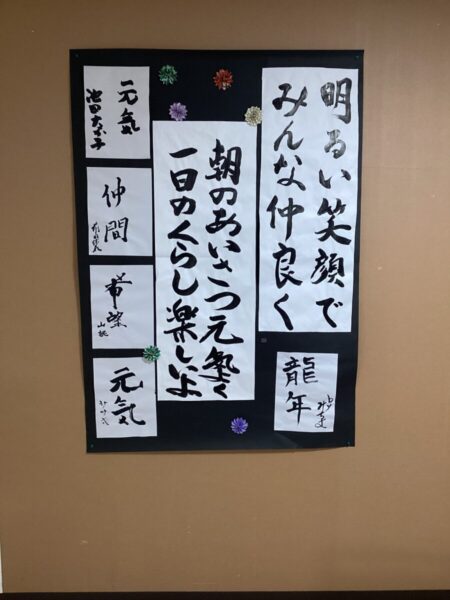 明るい笑顔で
みんな仲良く
朝のあいさつ元気よく
一日のくらし楽しいよ
龍年
元気
仲間
希望
山桃
元気